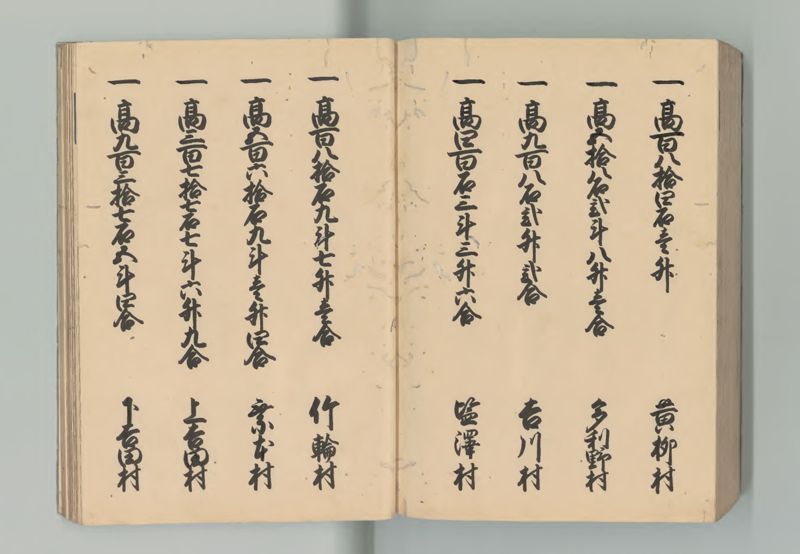 一 高百八拾四石壱升 黄柳村
一 高五拾八石弐斗八升壱合 多利野村
一 高九百八石弐升弐合 吉川村
一 高四百石三斗三升六合 塩澤村
一 高百八拾石九斗七升壱合 竹輪村
一 高五百六拾石九斗壱升四合 村
一 高三百七拾七石七斗六升九合 上吉田村
一 高九百三拾七石五斗四合 下吉田村